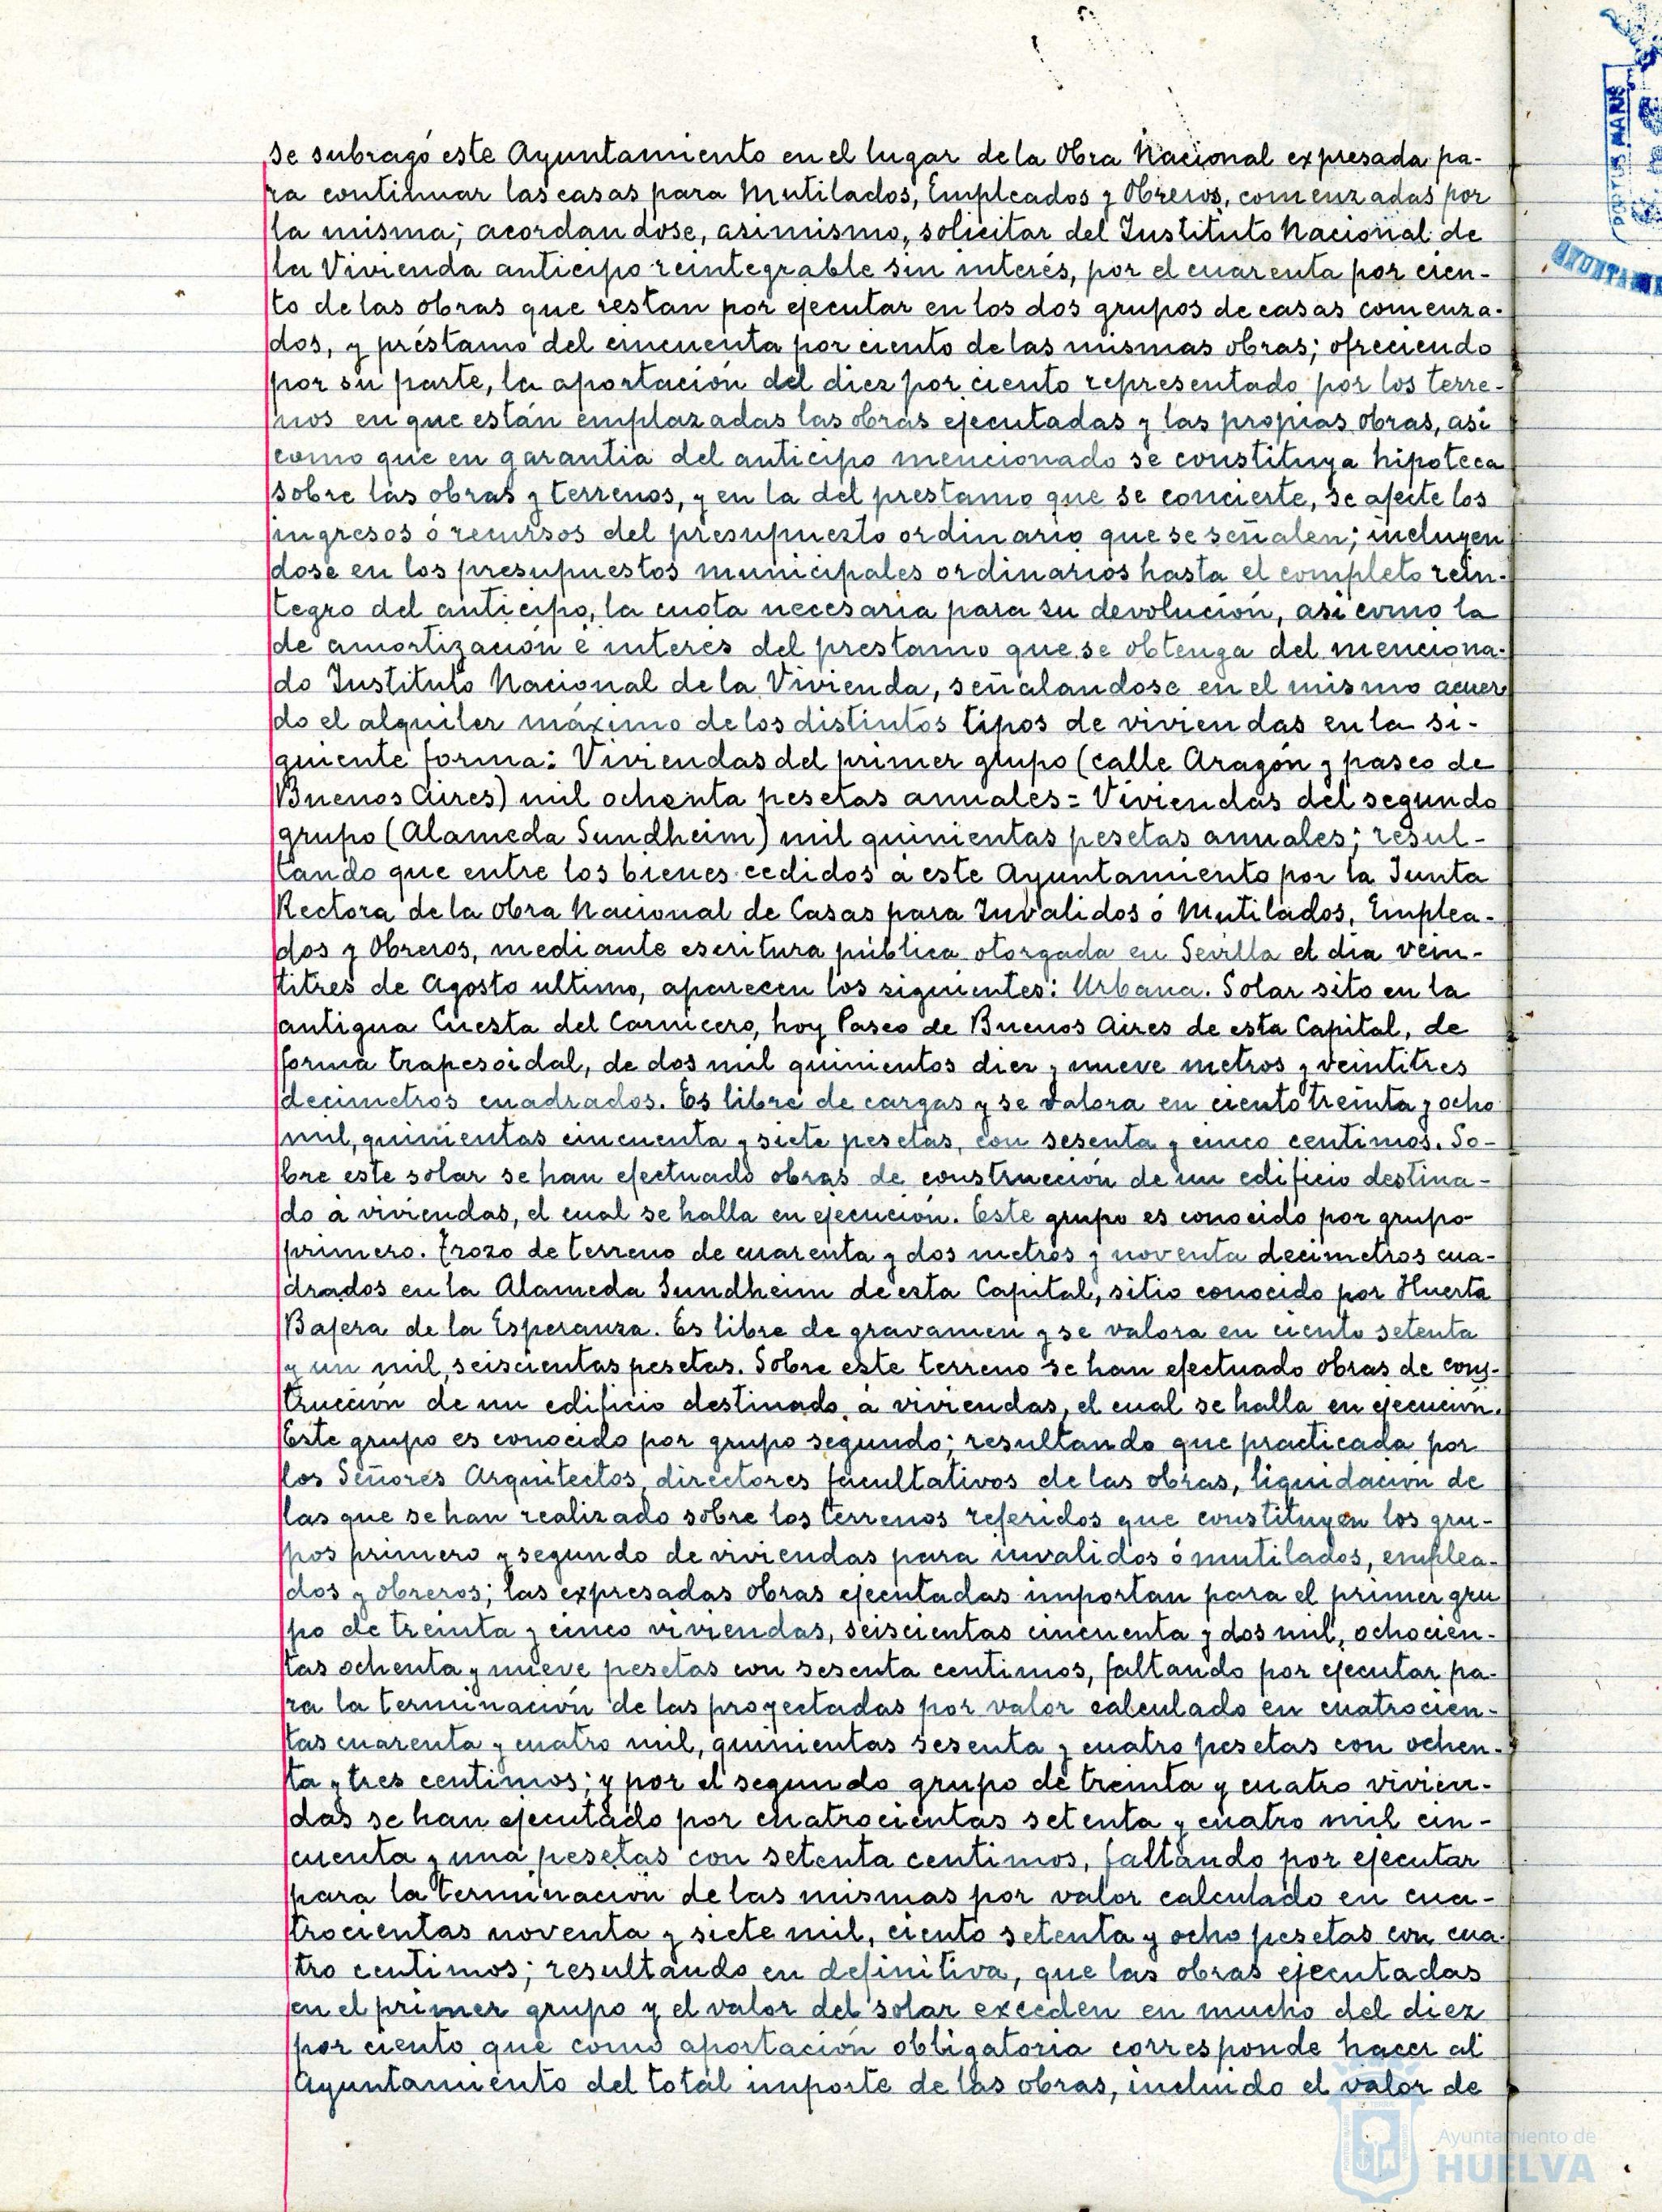 se subragó este Ayuntamiento en el lugar de la Obra Nacional expresada pa-
ra continuar las casas para Mutilados, Empleados y Obreros, comenzadas por
la misma; acordandose, asimismo, solicitar del Instituto Nacional de
la Vivienda anticipo reintegrable sin interés, por el cuarenta por cien-
to de las obras que restan por ejecutar en los dos grupos de casas comenza-
dos, y préstamo del cincuenta por ciento de las mismas obras; ofreciendo
por su parte, la aportación del diez por ciento representado por los terre-
nos en que están emplazadas las obras ejecutadas y las propias obras, asi
como que en garantia del anticipo mencionado se constituya hipoteca
sobre las obras y terrenos, y en la del prestamo que se concierte, se afecte los
ingresos ó recursos del presupuesto ordinario que se señalen; incluyen
dose en los presupuestos municipales ordinarios hasta el completo rein-
tegro del anticipo, la cuota necesaria para su devolución, asi como la
de amortización é interés del prestamo que se obtenga del menciona-
do Instituto Nacional de la Vivienda, señalandose en el mismo acuer
do el alquiler máximo de los distintos tipos de viviendas en la si-
guiente forma: Viviendas del primer grupo (calle Aragón y paseo de
Buenos Aires) mil ochenta pesetas anuales = Viviendas del segundo
grupo (Alameda Sundheim) mil quinientas pesetas anuales; resul-
tando que entre los bienes cedidos a este Ayuntamiento por la Junta
Rectora de la Obra Nacional de Casas para Invalidos ó Mutilados, Emplea-
dos y Obreros, mediante escritura pública otorgada en Sevilla el dia vein-
titres de Agosto ultimo, aparecen los siguientes: Urbana. Solar sito en la
antigua Cuesta del Carnicero, hoy Paseo de Buenos Aires de esta Capital, de
forma trapesoidal, de dos mil quinientos diez y nueve metros y veintitres
decimetros cuadrados. Es libre de cargas y se valora en ciento treinta y ocho
mil, quinientas cincuenta y siete pesetas, con sesenta y cinco centimos. So-
bre este solar se han efectuado obras de construcción de un edificio destina-
do a viviendas, el cual se halla en ejecución. Este grupo es conocido por grupo
primero. Trozo de terreno de cuarenta y dos metros y noventa decimetros cua-
drados en la Alameda Sundheim de esta Capital, sitio conocido por Huerta
Bajera de la Esperanza. Es libre de gravamen y se valora en ciento setenta
y un mil, seiscientas pesetas. Sobre este terreno se han efectuado obras de cons-
trucción de un edificio destinado a viviendas, el cual se halla en ejecución.
Este grupo es conocido por grupo segundo; resultando que practicada por
los Señores Arquitectos, directores facultativos de las obras, liquidación de
las que se han realizado sobre los terrenos referidos que constituyen los gru-
pos primero y segundo de viviendas para invalidos ó mutilados, emplea-
dos y obreros; las expresadas obras ejecutadas importan para el primer gru
po de treinta y cinco viviendas, seiscientas cincuenta y dos mil, ochocien-
tas ochenta y nueve pesetas con sesenta centimos, faltando por ejecutar pa-
ra la terminación de las proyectadas por valor calculado en cuatrocien-
tas cuarenta y cuatro mil, quinientas sesenta y cuatro pesetas con ochen-
ta y tres centimos; y por el segundo grupo de treinta y cuatro vivien-
das se han ejecutado por cuatrocientas setenta y cuatro mil cin-
cuenta y una pesetas con setenta centimos, faltando por ejecutar
para la terminación de las mismas por valor calculado en cua-
trocientas noventa y siete mil, ciento setenta y ocho pesetas con cua-
tro centimos; resultando en definitiva, que las obras ejecutadas
en el primer grupo y el valor del solar exceden en mucho del diez
por ciento que como aportación obligatoria corresponde hacer al
Ayuntamiento del total importe de las obras, incluido el valor de
Ayuntamiento de
HUELVA